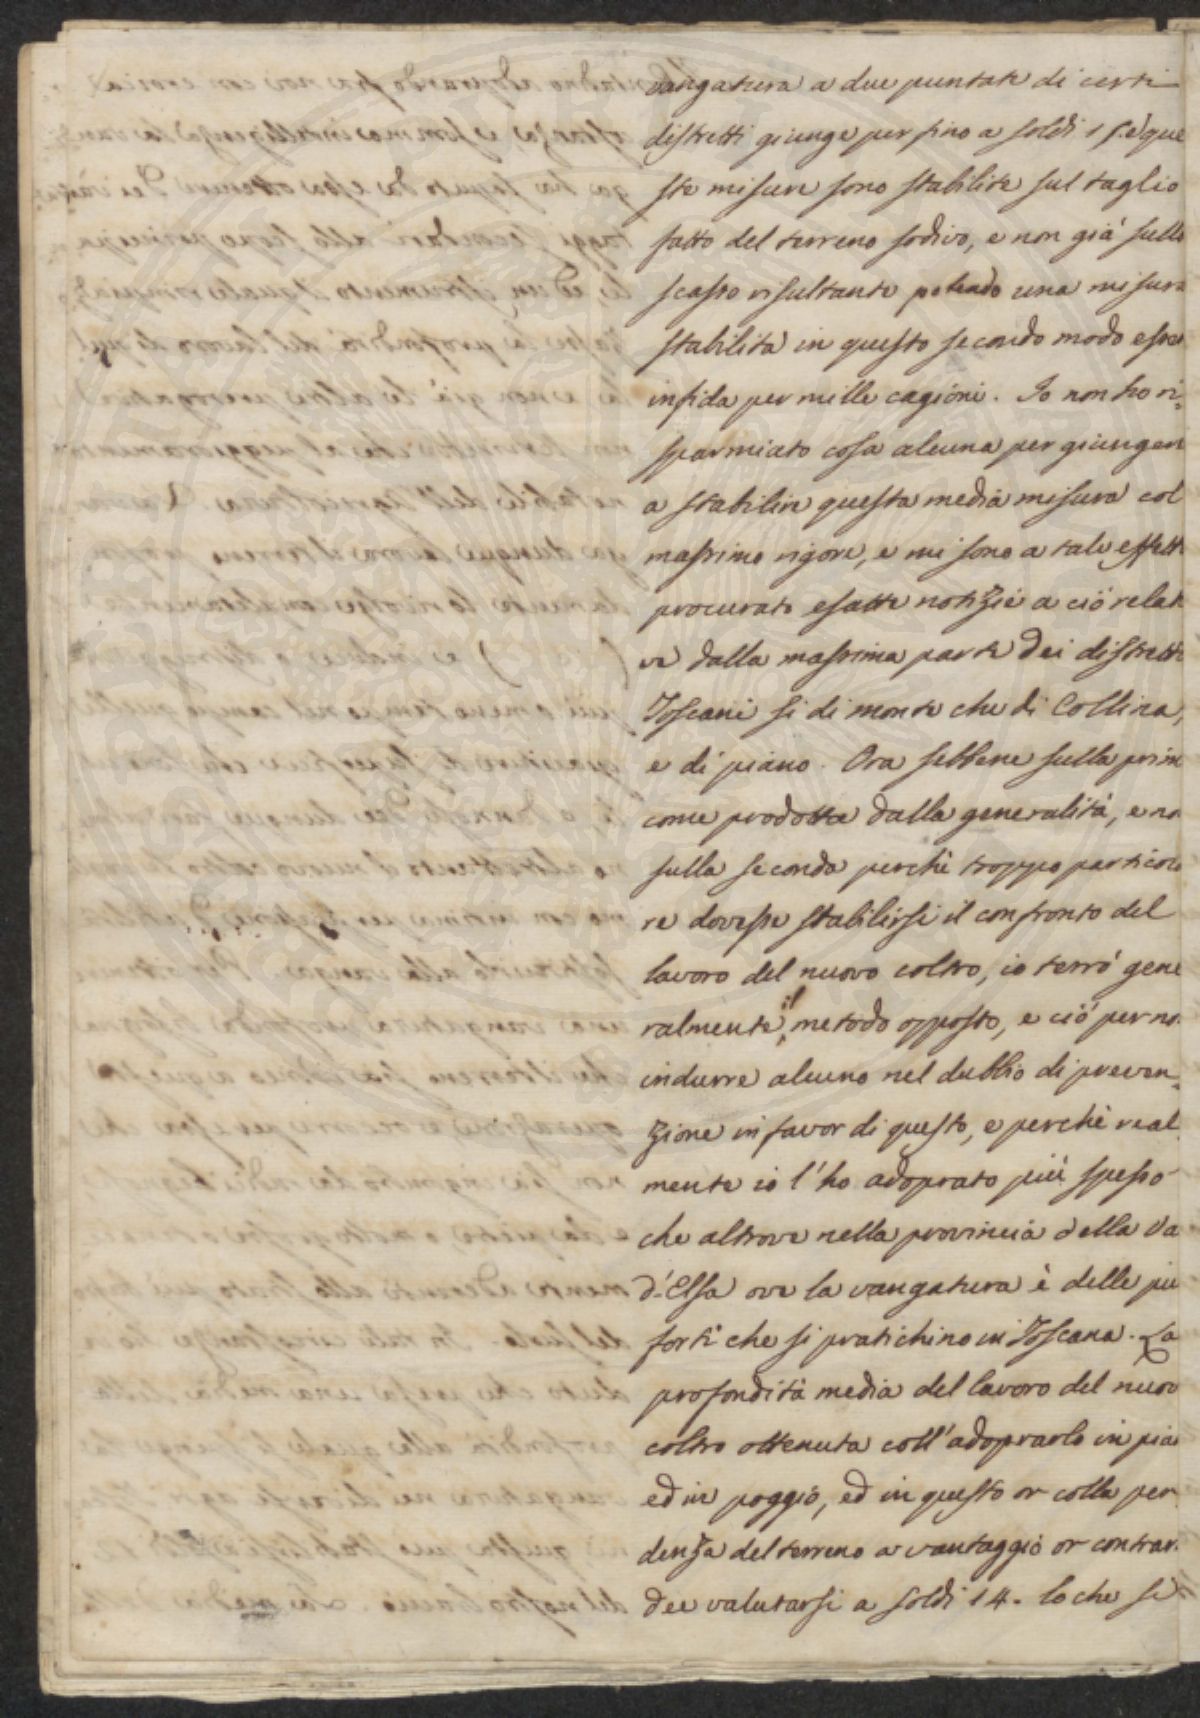 vangatura a due puntate di certi
distretti giunge per fino a soldi 15. e que
ste misure sono stabilite sul taglio
fatto del terreno sodivo, e non già sullo
scasso resultante potendo una misura
stabilita in questo secondo modo esser
infida per mille cagioni. Io non ho ri=
sparmiato cosa alcuna per giungere
a stabilire questa media misura col
massimo rigore, e mi sono a tale effetto
procurato esatte notizie a ciò relati
ve dalla massima parte dei distretti
Toscani si di monte che di Collina,
e di piano. Ora sebbene sulla prim
come prodotta dalla generalità, e no
sulla seconda perchè troppo particola
re dovesse stabilirsi il confronto del
lavoro del nuovo coltro, io terrò gene
ralmente il metodo opposto, e ciò per no
indurre alcuno nel dubbio di preven=
zione in favor di questo, e perchè real
mente io l'ho adoprato più spesso
che altrove nella provincia della Va
d'Elsa ove la vangatura è delle piu
forti che si pratichino in Toscana. La
profondità media del lavoro del nuovo
coltro ottenuta coll'adoprarlo in pia
ed in poggio, ed in questo or colla pen
denza del terreno a vantaggio or contrar.
dee valutarsi a soldi 14. lo che si